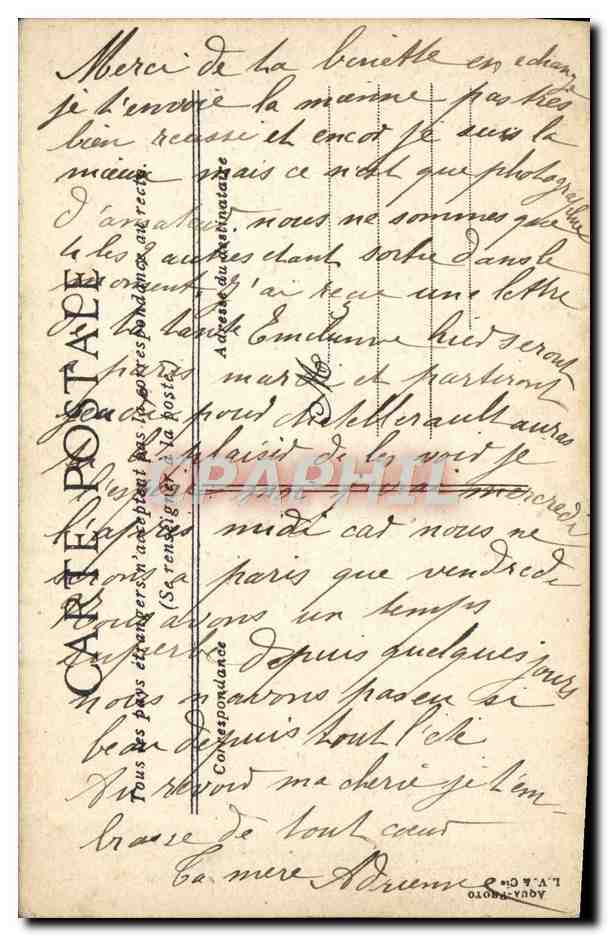 Merci de ta binette en echange
je t'envoie la mienne pas tres
bien reussi et encor je suis la
mieux mais ce n'est que photographie
d'amateur. nous ne sommes que
les autres etant sortie dans le
moment. j'ai reçu une lettre
de ta tante hier seront
a paris mardi et partiront
jeudi pour Chatellerault auras
plaisir de les voir je
l'espere moi j'irai mercredi
l'apres midi car nous ne
serons a paris que vendredi
nous avons un temps
superbe depuis quelques jours
nous n'avons pas eu si
beau depuis tout l'été
Au revoir ma cherie je t'em-
brasse de tout cœur
Ta mère Adrienne
CARTE POSTALE
Tous les pays étrangers n'acceptent pas la correspondance au recto.
(Se renseigner à la poste)
Correspondance
Adresse du destinataire
M
CPAPHIL
AQUA-PHOTO
L.V. & Cie